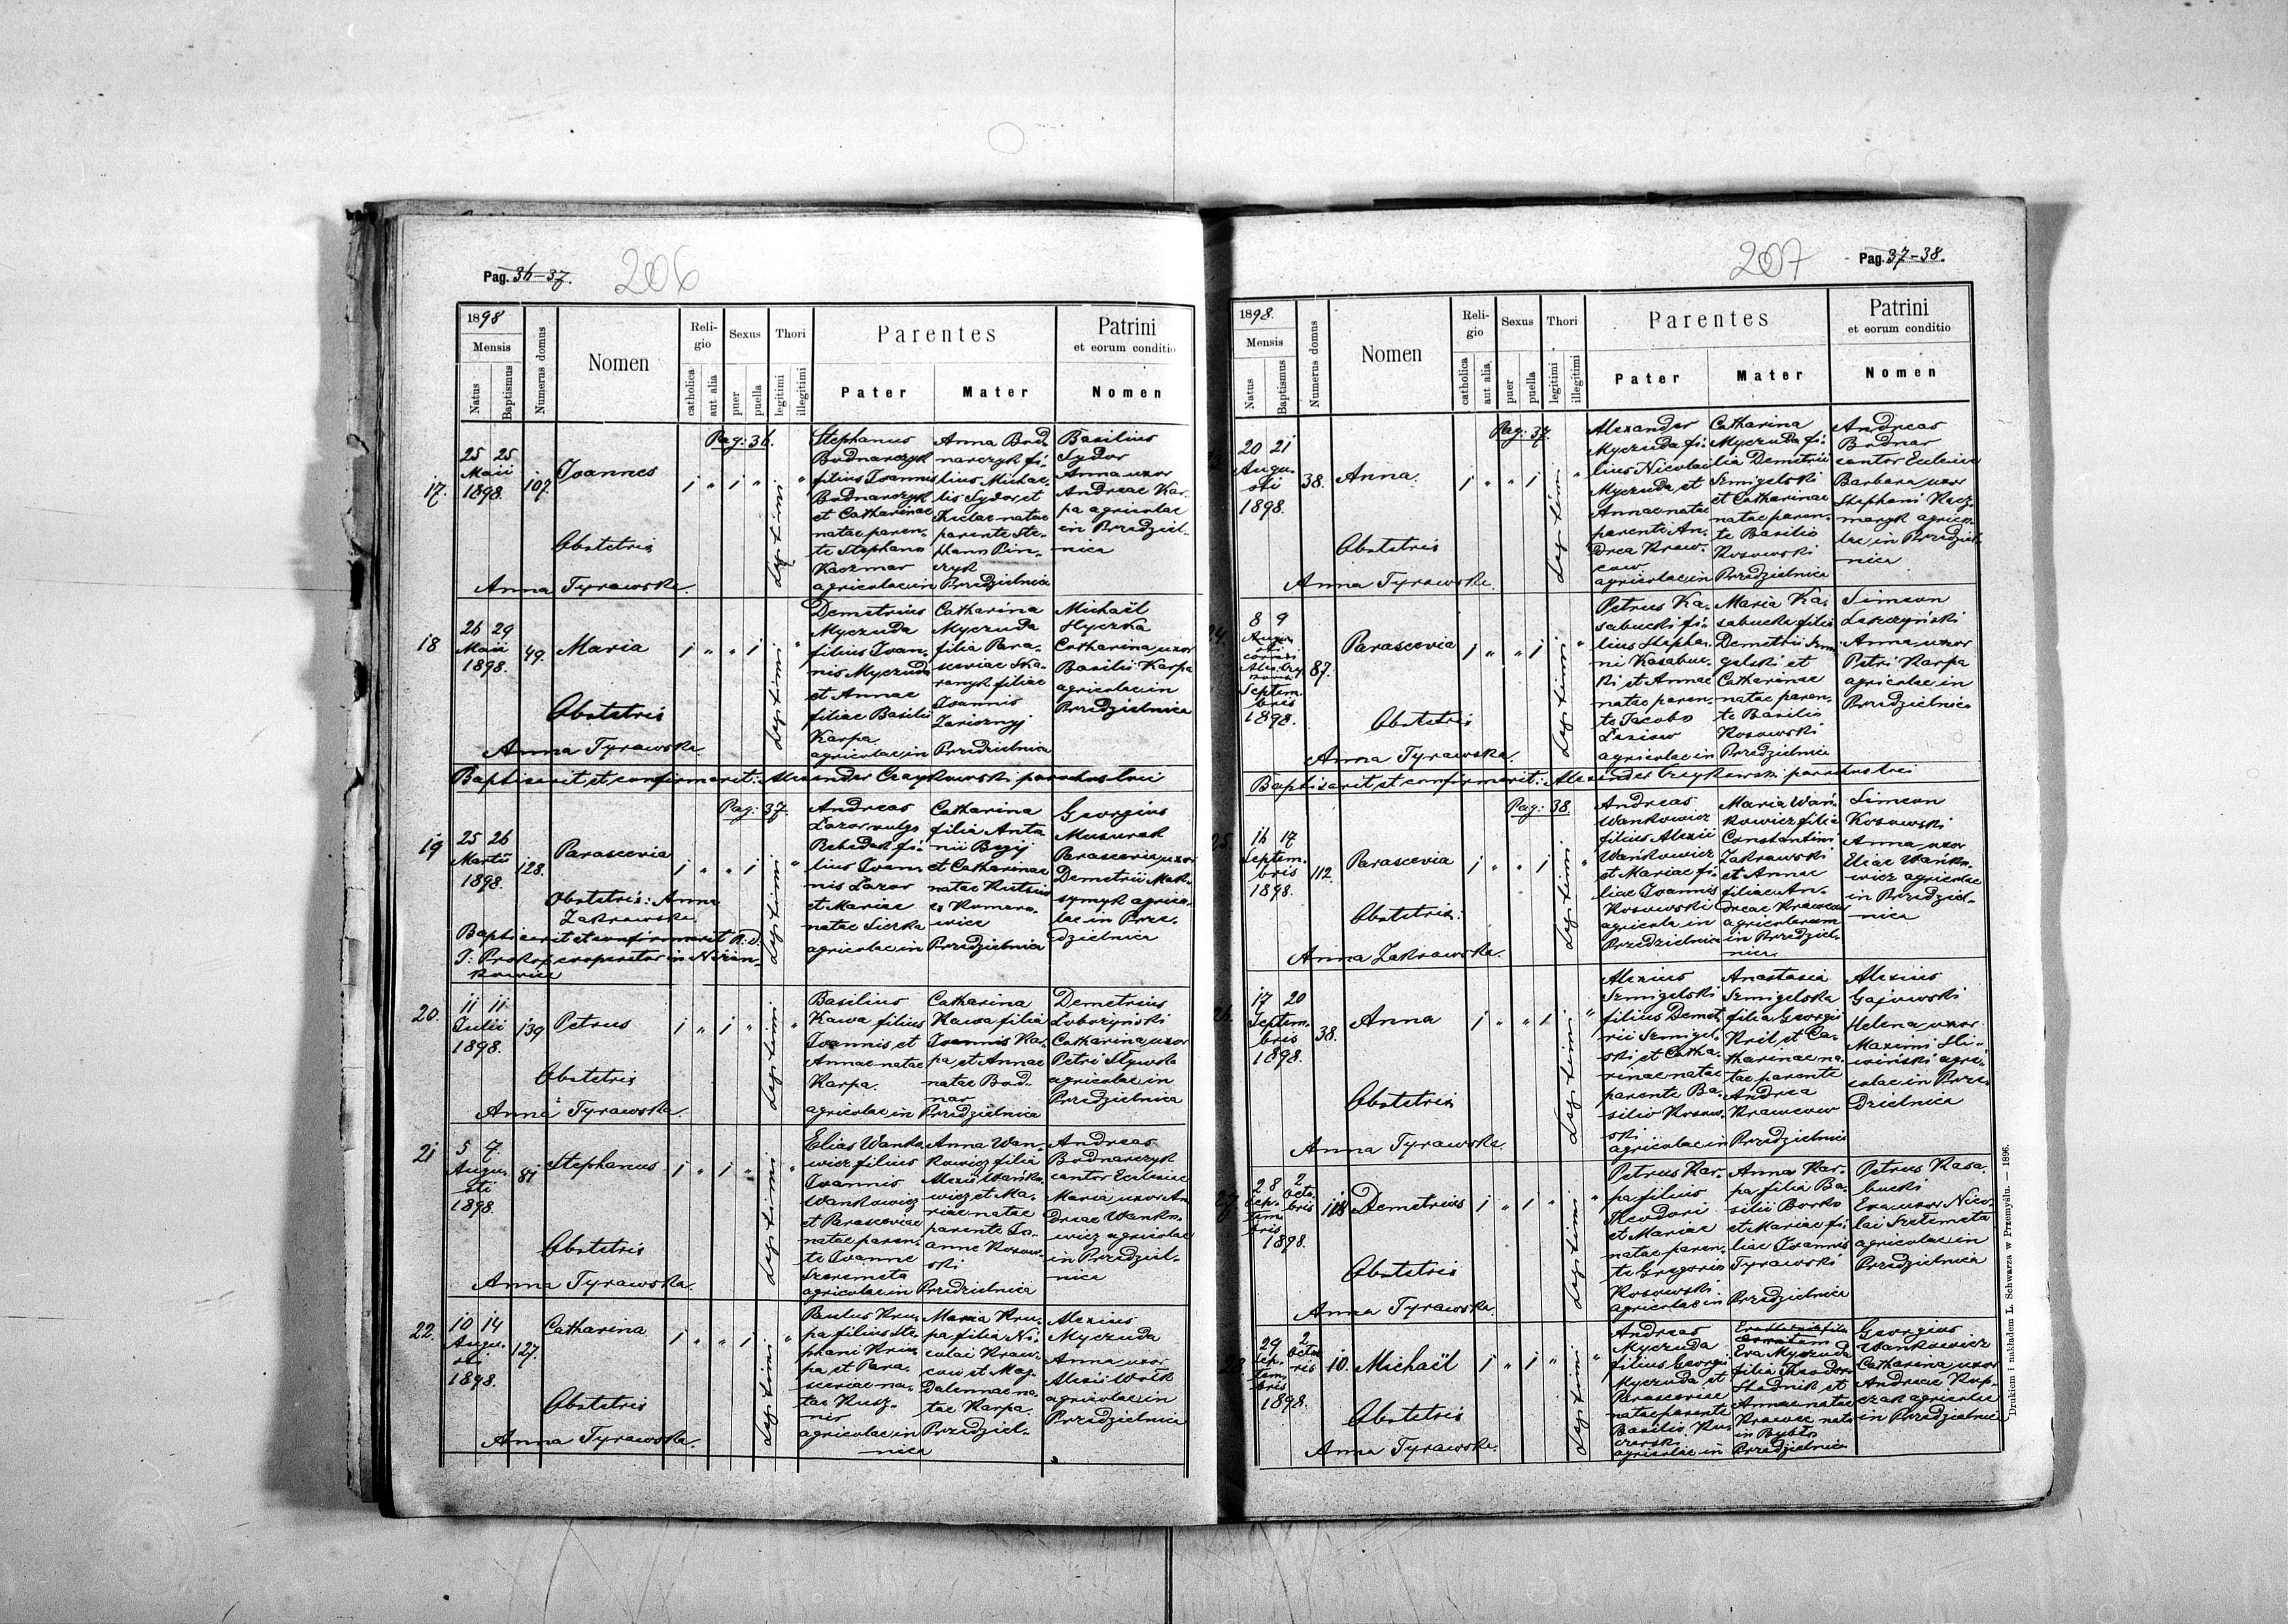 Pag. 36-37.
206
1898
Mensis
Natus
Baptismus
Numerus domus
Nomen
Reli-
gio
catholica
aut alia
Sexus
puer
puella
Thori
legitimi
illegitimi
Parentes
Pater
Mater
Patrini
et eorum conditio
Nomen
Pag: 36.
17.
25 25
Maii
1898.
107.
Joannes
Obstetrix
Anna Tyrawska.
Legitimi
Stephanus
Bodnarczyk
filius Joannis
Bodnarczyk
et Catharinae
natae paren-
te Stephano
Kaczmar
agricolae in
Anna Bod-
narczyk fi-
lius Michae-
lis Sydor et
natae
parente Ste-
phano Pin-
czyk
Przedzielnica
Basilius
Sydor
Anna uxor
Andreae Kar-
pa agricolae
in Przedziel-
nica
18
26 29
Maii
1898.
49.
Maria
Obstetrix
Anna Tyrawska
Legitimi
Demetrius
Myczuda
filius Joan-
nis Myczuda
et Annae
filiae Basilii
Karpa
agricolae in
Catharina
Myczuda
filia Para-
sceviae Ska-
ranyk filiae
Joannis
Zaricznyj
Przedzielnica
Michaël
Hyczka
Catharina uxor
Basilii Karpa
agricolae in
Przedzielnica
Baptisavit et confirmavit: Alexander Czaykowski parochus loci
Pag: 37.
19
25 26
Martii
1898.
128.
Parascevia
Obstetrix: Anna
Zakrawska
Baptisavit et confirmavit R: d.
J: Prokop cooperator in Nizan-
kowice
Legitimi
Andreas
Lazor vulgo
Bebedak fi-
lius Joan-
nis Lazor
et Mariae
natae Sierka
agricolae in
Catharina
filia Anto
nii Begij
et Catharinae
natae
ex Komaro-
wice
Przedzielnica
Georgius
Mazurak
Parascevia uxor
Demetrii Mak-
symyk agrico-
lae in Prze-
dzielnica
20.
11 11
Julii
1898.
139
Petrus
Obstetrix
Anna Tyrawska.
Legitimi
Basilius
Kawa filius
Joannis et
Annae natae
Karpa.
agricolae in
Catharina
Kawa filia
Joannis Ka-
pa et Annae
natae Bod-
nar
Przedzielnica
Demetrius
Lubozyński
Catharina uxor
Petri Slywka
agricolae in
Przedzielnica
21
5 7
Augu-
sti
1898
81
Stephanus
Obstetrix
Anna Tyrawska.
Legitimi
Elias Wanko
wicz filius
Joannis
Wankowicz
et Parasceviae
natae paren-
te Joanne
Szeremeta
agricolae in
Anna Wan-
kowicz filia
Alexii Wańko-
wicz et Ma-
riae natae
parente Jo-
anne Kosow-
ski
Przedzielnica
Andreas
Bodnarczyk
cantor Ecclesiae
Maria uxor An
dreae Wanko-
wicz agricolae
in Przedziel-
nica
22.
10 14
Augu-
sti
1898.
127.
Catharina
Obstetrix
Anna Tyrawska.
Legitimi
Paulus Kru-
pa filius Ste-
phani Kru-
pa et Para-
sceviae na-
tae Kusz-
nir
agricolae in
Maria Kru-
pa filia Ni-
colai Kraw-
cow et Mag-
dalennae na-
tae Karpa.
Przedziel-
nica
Alexius
Myczuda
Anna uxor
Alexii Wolk
agricolae in
Przedzielnica
207
Pag. 37-38.
1898.
Mensis
Natus
Baptismus
Numerus domus
Nomen
Reli-
gio
catholica
aut alia.
Sexus
puer
puella
Thori
legitimi
illegitimi
Parentes
Pater
Mater
Patrini
et eorum conditio
Nomen
Pag: 37.
20 21
Augu-
sti
1898.
38.
Anna.
Obstetrix
Anna Tyrawska.
Legitimi
Alexander
Myczuda fi-
lius Nicolai
Myczuda et
Annae natae
parente An-
drea Kraw-
cow
agricolae in
Catharina
Myczuda fi-
lia Demetrii
Szmigelski
et Catharinae
natae paren-
te Basilio
Kosowski
Przedzielnica
Andreas
Bodnar
cantor Ecclesiae
Barbara uxor
Stephani Kacz-
maryk agrico-
lae in Przedziel-
nica
8 9
Septem-
bris
1898.
87.
Parascevia
Obstetrix
Anna Tyrawska.
Legitimi
Petrus Ka-
sabucki fi-
lius Stepha-
ni Kasabuc-
ki et Annae
natae paren-
te Jacobo
agricolae in
Maria Ka-
sabucki filia
Demetrii Szmi
gelski et
Catharinae
natae paren-
te Basilio
Kosowski
Przedzielnica
Simeon
Anna uxor
Petri Karpa
agricolae in
Przedzielnica
Baptisavit et confirmavit: Alexander Czaykowski parochus loci
Pag: 38.
25.
16 17
Septem-
bris
1898.
112.
Parascevia
Obstetrix:
Anna Zakrawska.
Legitimi
Andreas
Wankowicz
filius Alexii
Wańkowicz
et Mariae fi-
liae Joannis
Kosowski
agricola in
Przedzielnica
Maria Wań-
kowicz filia
Constantini
Zakrawski
et Annae
filiae An-
dreae Krawcow
agricolarum
in Przedziel-
nica.
Simeon
Kosowski
Anna uxor
Eliae Wańko-
wicz agricolae
in Przedziel-
nica
17 20
Septem-
bris
1898.
38.
Anna
Obstetrix
Anna Tyrawska.
Legitimi
Alexius
Szmigelski
filius Demet-
rii Szmigel-
ski et Catha-
rinae natae
parente Ba-
silio Kosow-
ski
agricolae in
Anastasia
Szmigelska
filia Georgii
Kril et Ca-
tharinae na-
tae parente
Andrea
Krawcow
Przedzielnica
Alexius
Gajowski
Helena uxor
Maximi Sli-
wiński agri-
colae in Prze-
dzielnica
27
28
Sep-
tem-
bris
2
Octo-
bris
1898.
118
Demetrius
Obstetrix
Anna Tyrawska.
Legitimi
Petrus Kar-
pa filius
Theodori
et Mariae
natae paren-
te Gregorio
Kosowski
agricolae in
Anna Kar-
pa filia Ba-
silii Borko
et Mariae fi-
liae Joannis
Tyrawski
Przedzielnica
Petrus Kasa-
bucki
Eva uxor Nico-
lai Szelemeta
agricolae in
Przedzielnica
28.
29
Sep-
tem-
bris
2
Octo-
bris
1898.
10.
Michaël
Obstetrix
Anna Tyrawska.
Legitimi
Andreas
Myczuda
filius Georgii
Myczuda et
Parasceviae
natae parente
Basilio Ku-
czerski
agricolae in
Eva Myczuda
filia Theodori
Stadnik et
Annae natae
Krawec nata
in
Przedzielnica
Georgius
Wankowicz
Catharina uxor
Andreae Kup-
czak agricolae
in Przedzielnica
Drukiem i nakładem L. Schwarza w Przemyślu. — 1896.